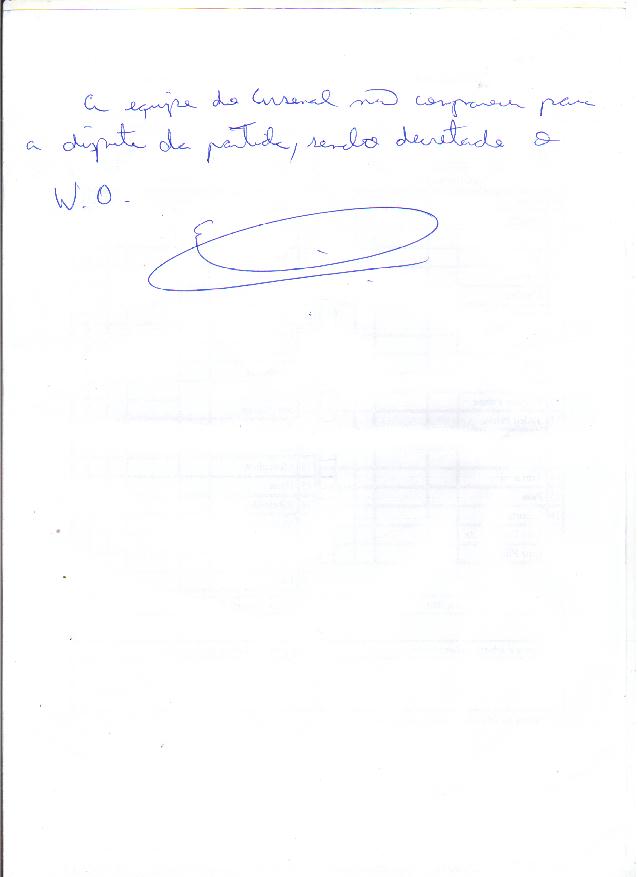 A equipe do Arsenal não compareceu para
a disputa da partida, sendo decretado o
W.O.